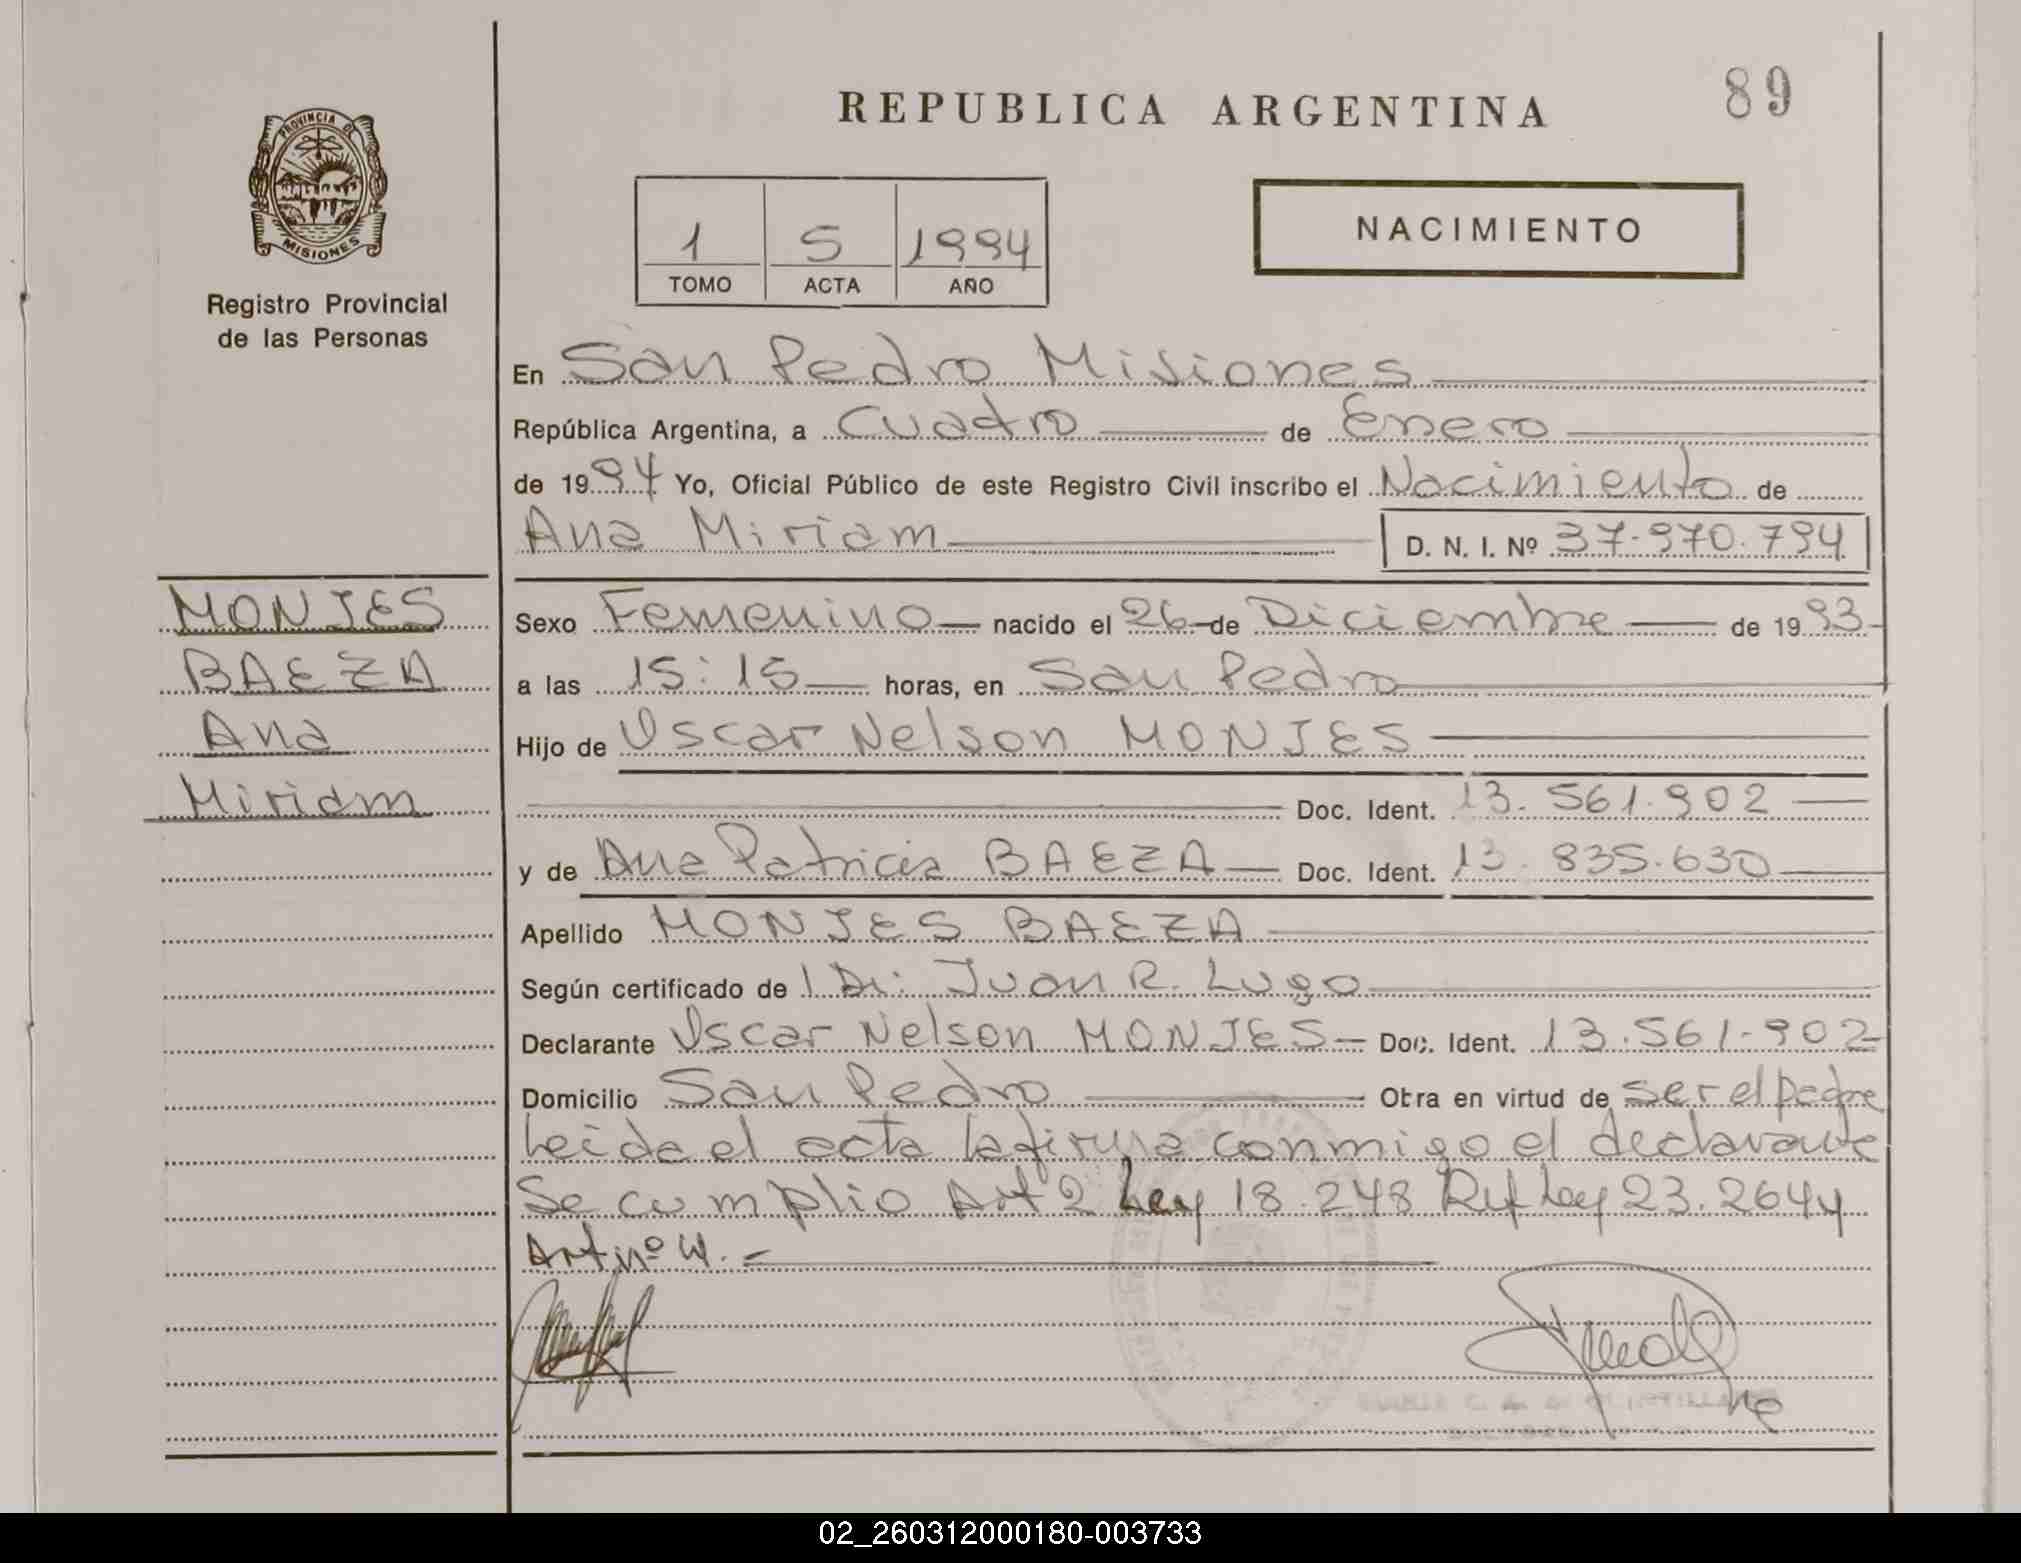 REPUBLICA ARGENTINA
89
PROVINCIA DE
MISIONES
Registro Provincial
de las Personas
1 5 1994
TOMO ACTA AÑO
NACIMIENTO
En San Pedro Misiones
República Argentina, a Cuadro de Enero
de 1994 Yo, Oficial Público de este Registro Civil inscribo el Nacimiento de
Ana Miriam D. N. I. Nº 37.970.794
MONJES
BAEZA
Ana
Miriam
Sexo Femenino nacido el 26 de Diciembre de 1993
a las 15:15 horas, en San Pedro
Hijo de Oscar Nelson MONJES
Doc. Ident. 13.561.902
y de Ana Patricia BAEZA Doc. Ident. 13.835.630
Apellido MONJES BAEZA
Según certificado de Dr. Juan R. Lugo
Declarante Oscar Nelson MONJES Doc. Ident. 13.561.902
Domicilio San Pedro Obra en virtud de ser el padre
Leida el acta la firma conmigo el declarante
Se cumplio Art 2 Ley 18.248 Ley 23.264 y
Art nº
02_260312000180-003733